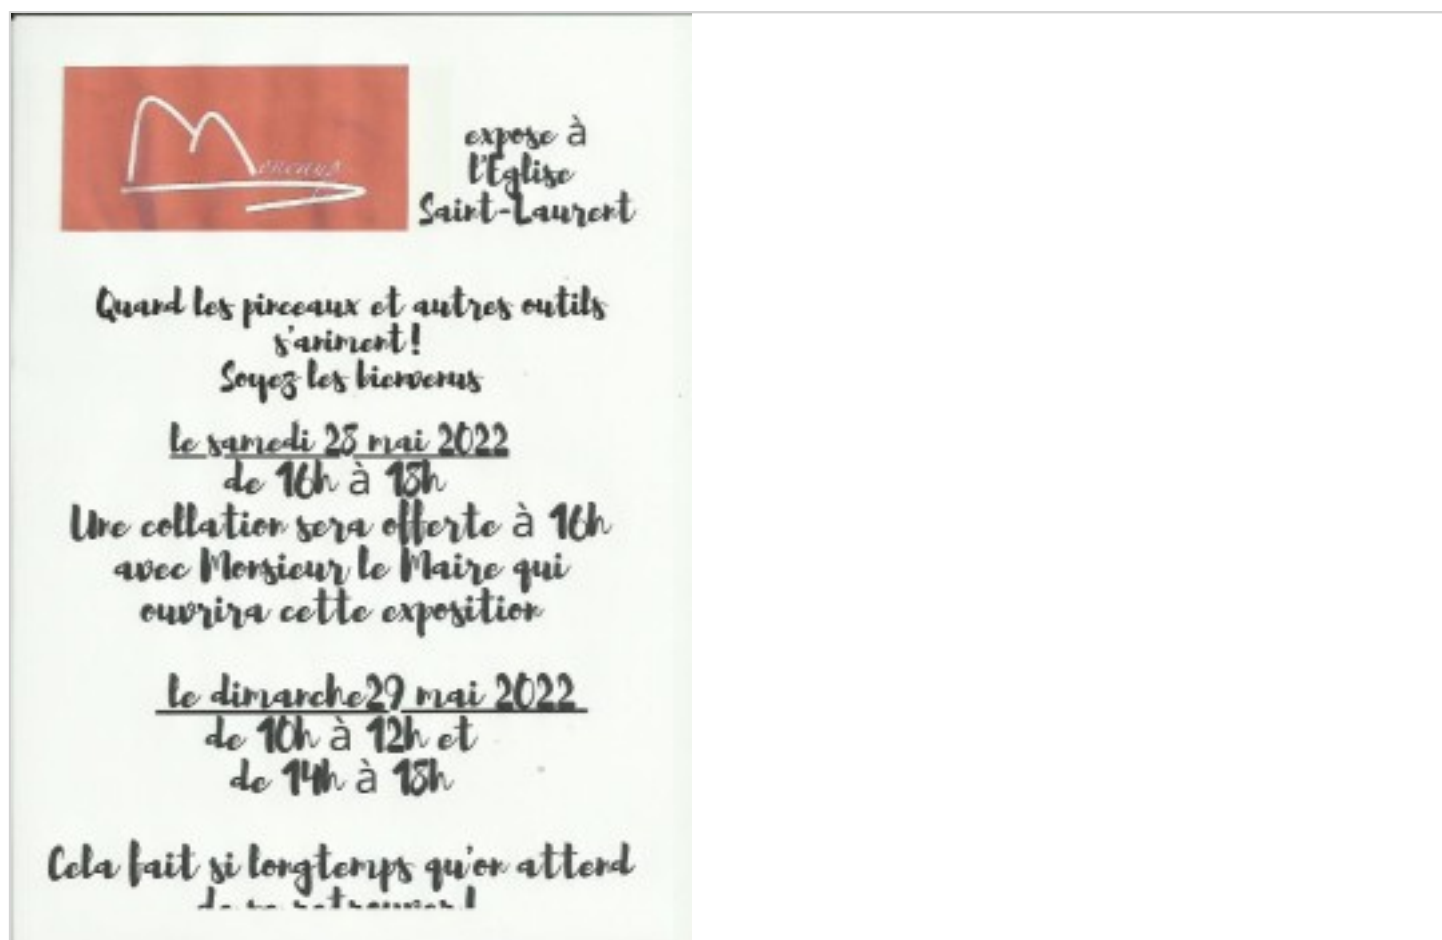 expose à
l'Eglise
Saint-Laurent
Quand les pinceaux et autres outils
s'animent !
Soyez les bienvenus
le samedi 28 mai 2022
de 16h à 18h
Une collation sera offerte à 16h
avec Monsieur le Maire qui
ouvrira cette exposition
le dimanche29 mai 2022
de 10h à 12h et
de 14h à 18h
Cela fait si longtemps qu'on attend
de se retrouver !